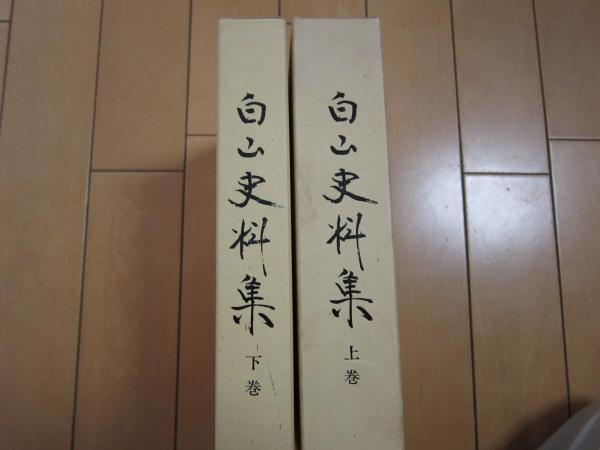 白山史料集
上巻
白山史料集
下巻